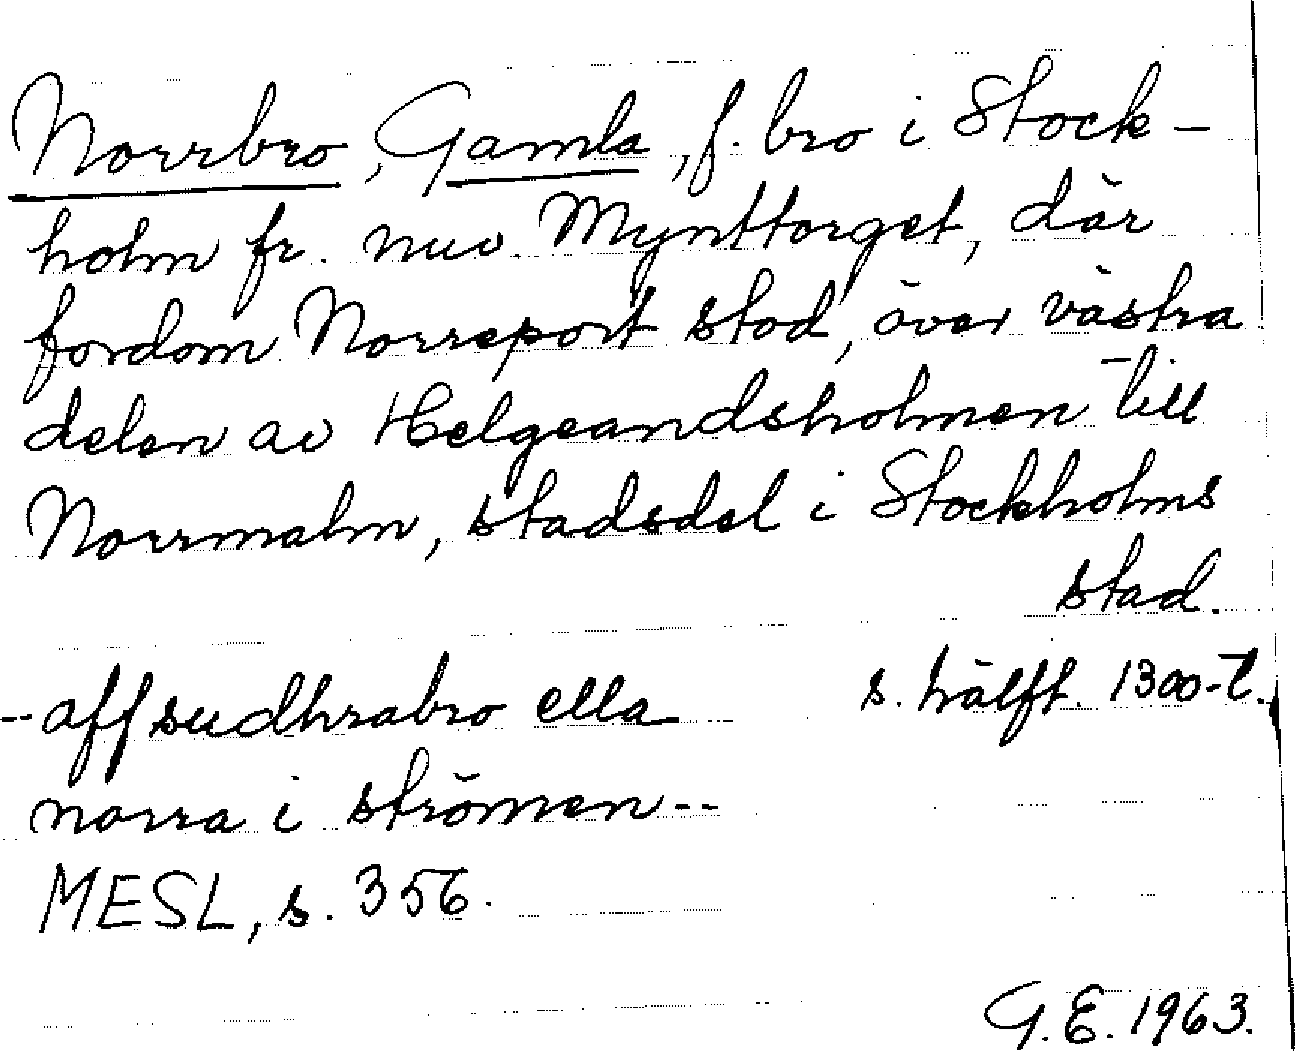 Norrbro, Gamla, f. bro i Stock-
holm fr. nuv. Mynttorget, där
fordom Norreport stod, över västra
delen av Helgeandsholmen till
Norrmalm, stadsdel i Stockholms
stad.
-- aff sudhrabro ella
s. hälft. 1300-t.
norra i strömen --
MESL, s. 356.
G.E. 1963.